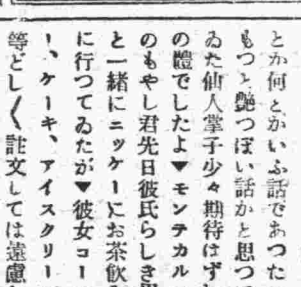 とか何とかいふ話であつた
もつと艶つぽい話かと思つ
ゐた仙人掌子少々期待はず
の體でしたよ▼モンテカル
のもやし君先日彼氏らしき
と一緒にニッケーにお茶飲
に行つてゐたが▼彼女コー
ー、ケーキ、アイスクリー
等どし〱註文しては遠慮